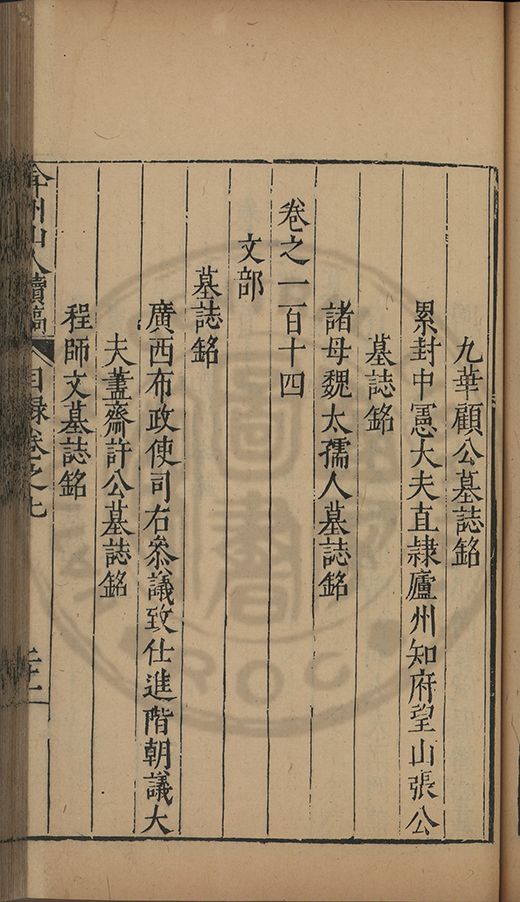 九華顧公墓誌銘
累封中憲大夫直隸廬州知府望山張公
墓誌銘
諸母魏太孺人墓誌銘
卷之一百十四
文部
墓誌銘
廣西布政使司右叅議致仕進階朝議大
夫藎齋許公墓誌銘
程師文墓誌銘
弇州山人續稿 目錄卷之九
圖書
ROC